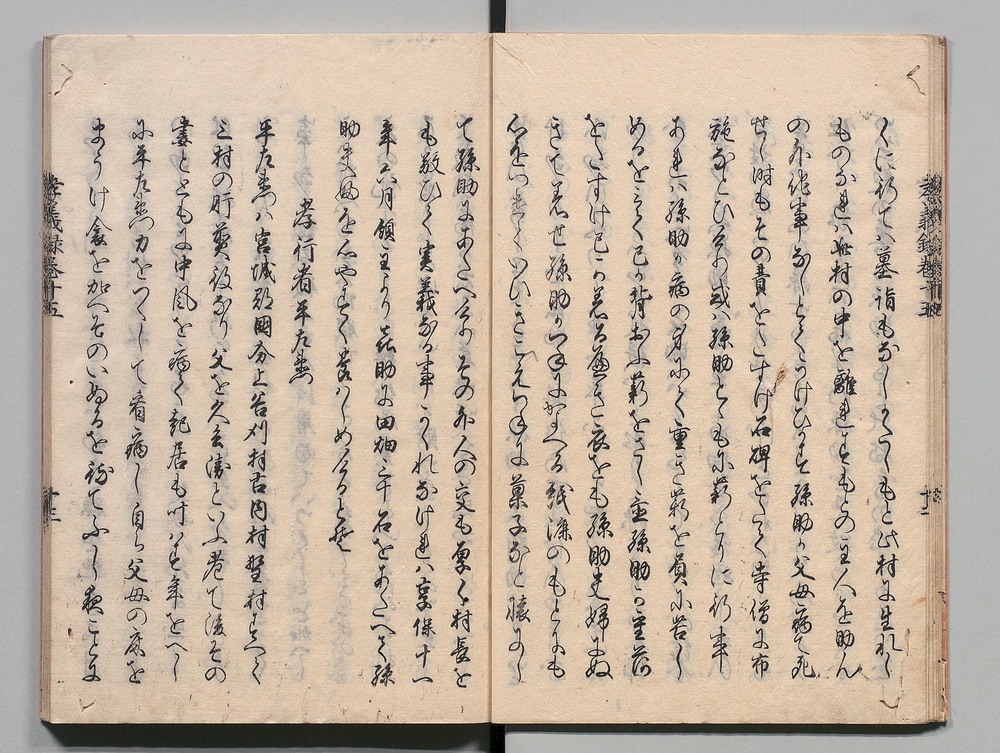 くに行ては墓詣もなしかくしもと此村に生れし
ものなれは此村の中を離れすもとの主人を助ん
の外他事なしとてうけひかす孫助か父母病て死
せし時もその費をたすけ石碑をたて寺僧に布
施なとひそかに或は孫助とともに薪とりに行事
あれは孫助か病の身にて重き薪を負に苦し
めるをみて己か背おふ薪をさし置孫助か重荷
をたすけ己か着る薄き衣をも孫助夫婦にぬ
きて着せ孫助かつねにかよへる紙漉のもとにも
心をつけてくひきこえつねに菓子なと懐にし
て孫助にあたへその外人の交も厚く村長を
も敬ひて実義なる事かくれなけれは享保十一
年六月領主より喜助に田畑三千石をあたへて孫
助夫婦を心やすく養はしめけるとそ
孝行者平左衛門
平左衛門は宮城郡国分上谷刈村古内村野村すへて
三村の肝煎役なり父を久兵衛といふ老て後その
妻とともに中風を病て起居も叶はす年をへし
に平左衛門力をつくして看病し自ら父母の床を
まうけ衾を加へそのいぬるを待てふし夜ことに
孝義録巻十五
十二